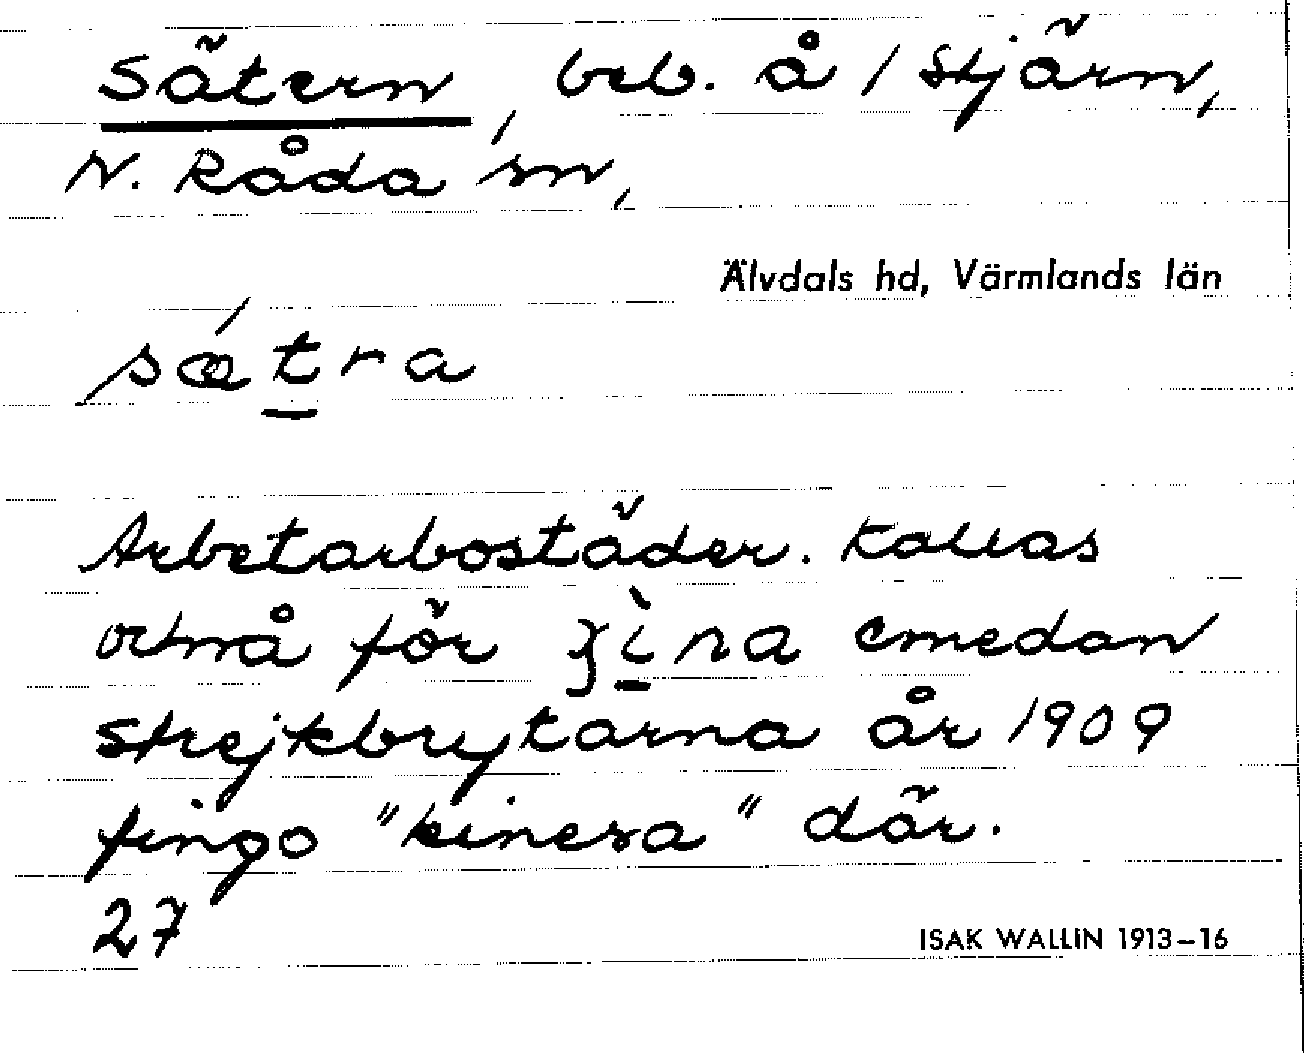 Sätern, beb. å 1 Stjärn,
N. Råda sn,
Älvdals hd, Värmlands län
sǽtra
Arbetarbostäder. Kallas
också för ìna emedan
strejkbrytarna år 1909
fingo "kinesa" där.
27
ISAK WALLIN 1913–16